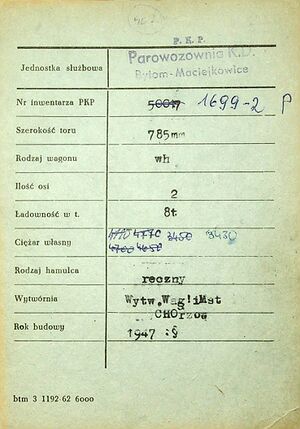 P. K. P.
Jednostka służbowa
Parowozownia K.D.
Bytom-Maciejkowice
Nr inwentarza PKP 50017 1699-2 P
Szerokość toru 785mm
Rodzaj wagonu wh
Ilość osi 2
Ładowność w t. 8t.
Ciężar własny 4770 3450 3430
4700 4650
Rodzaj hamulca ręczny
Wytwórnia Wytw.Wag!iMst
CHOrzow
Rok budowy 1947 :§
btm 3 1192-62 6000